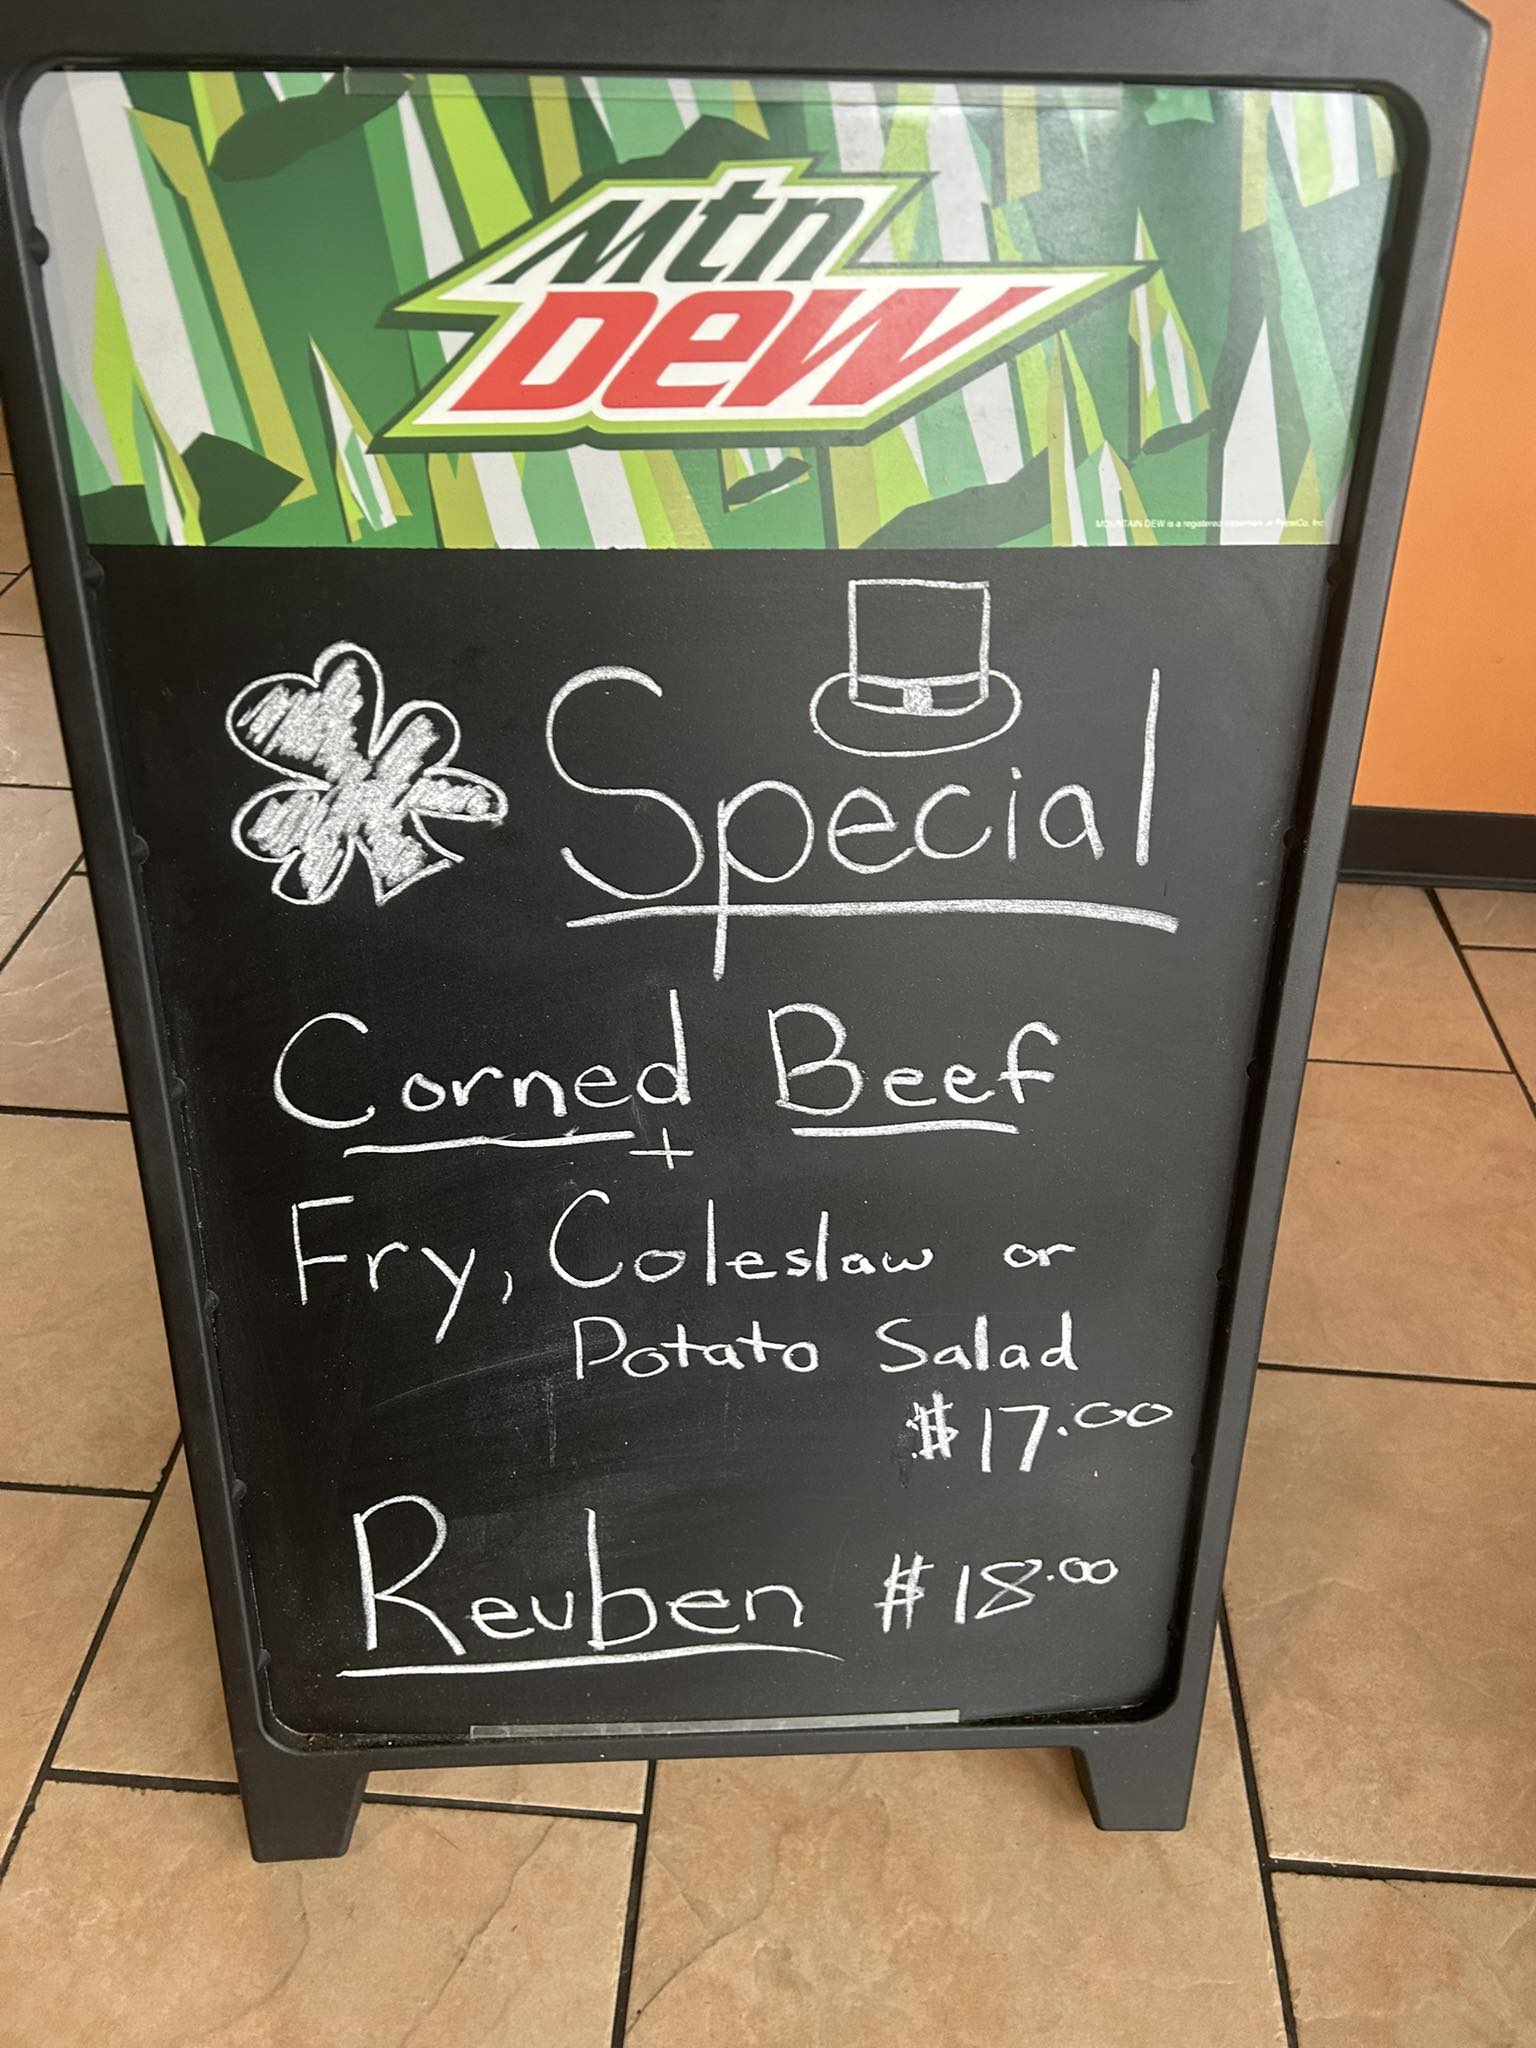 Mtn
Dew
MOUNTAIN DEW is a registered trademark of PepsiCo, Inc.
Special
Corned Beef
+
Fry, Coleslaw or
Potato Salad
$17.00
Reuben $18.00